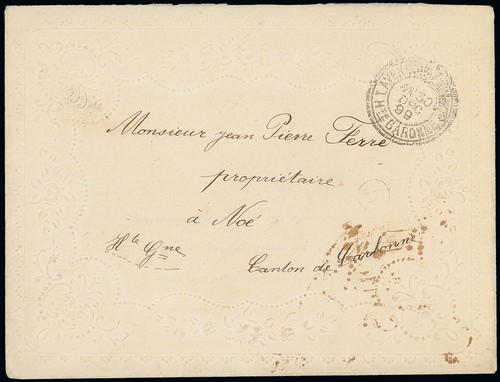 30
DEC
99
Hte GARONNE
Monsieur jean Pierre Ferré
propriétaire
à Noé
Hte Gne
Canton de Carbonne